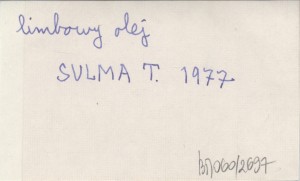 limbowy olej
SULMA T. 1977
BT/060/2697